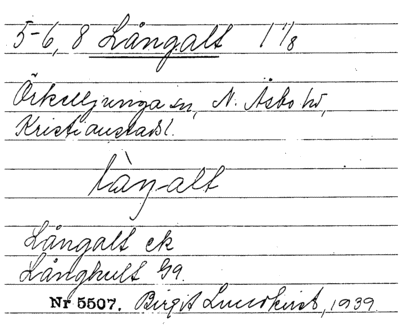 5-6, 8 Långalt 1 1/8
Örkelljunga sn, N. Åsbo hd,
Kristianstads l.
làŋ-alt
Långalt ek
Långhult Gg.
Nr 5507. Birgit Lundkvist, 1939.